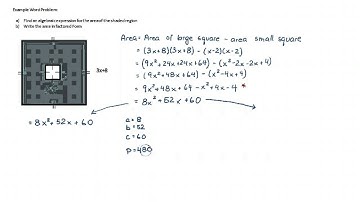 Example Word Problem:
a) Find an algebraic expression for the area of the shaded region
b) Write the area in factored form
3x+8
Area = Area of large square - area small square
= (3x+8)(3x+8) - (x-2)(x-2)
= (9x²+24x+24x+64) - (x²-2x-2x+4)
= (9x²+48x+64) - (x²-4x+4)
= 9x²+48x+64 -x²+4x-4 *
= 8x²+52x+60
= 8x²+52x+60
a=8
b=52
c=60
p=480